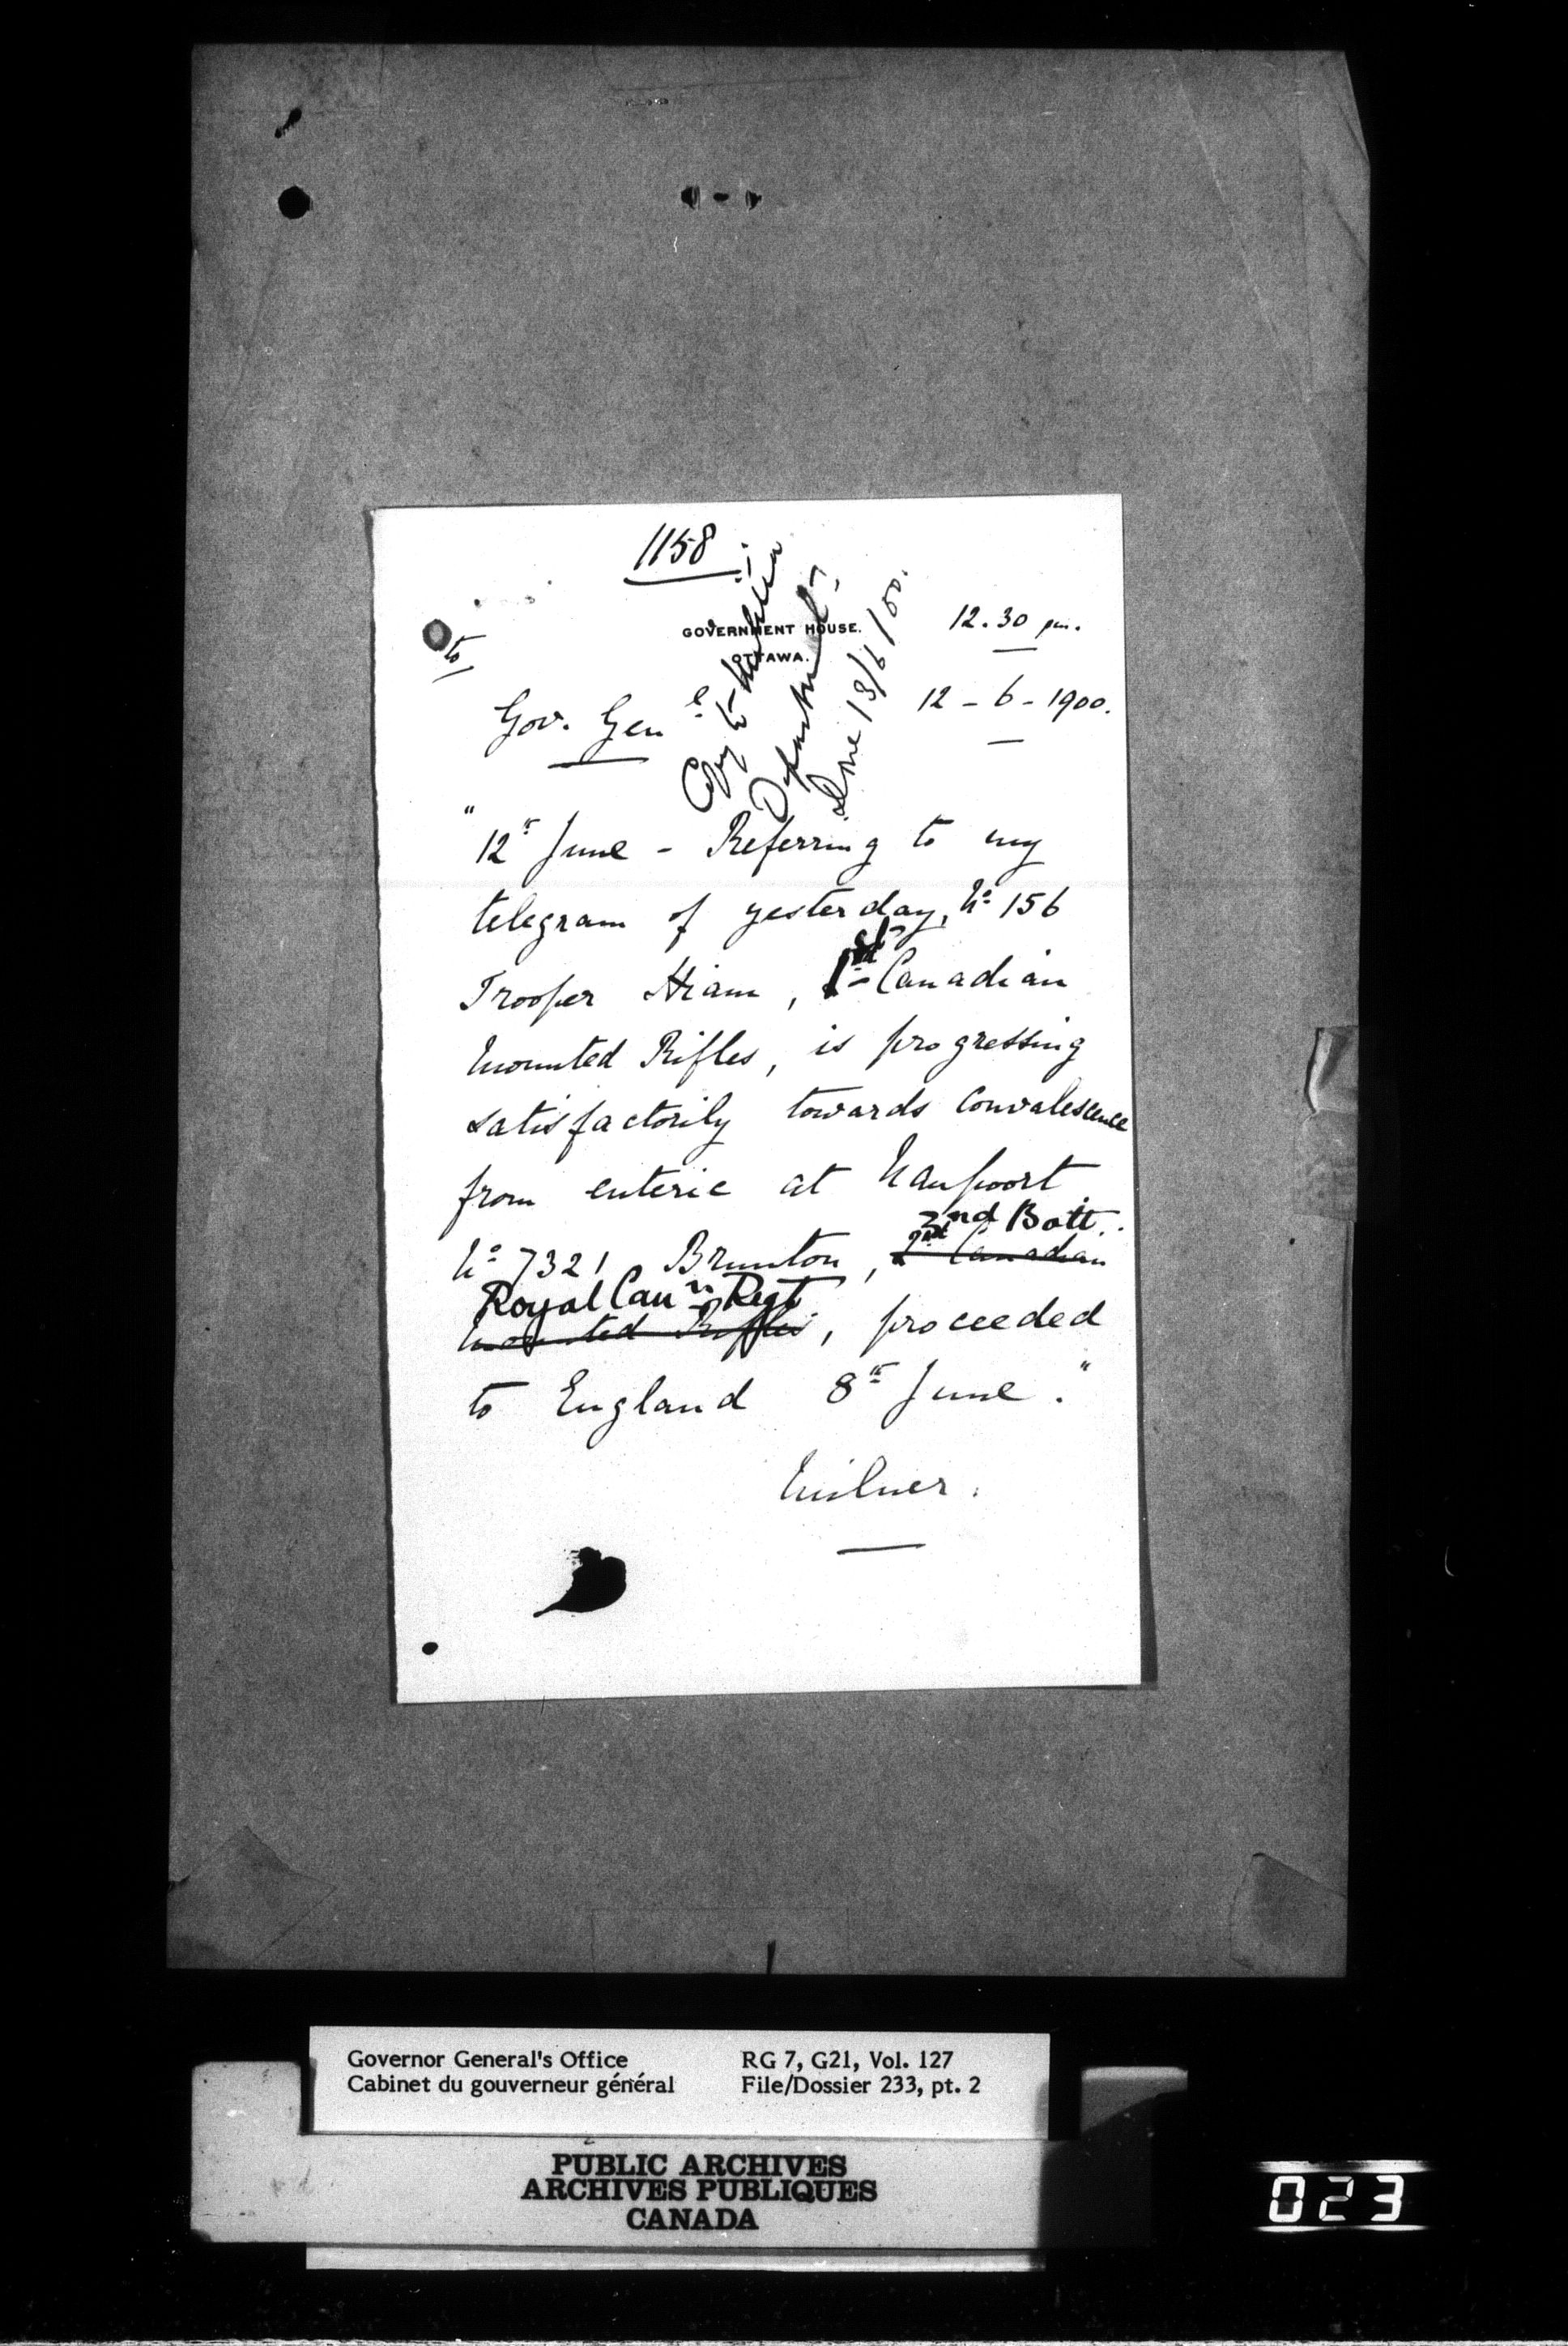 1158
GOVERNMENT HOUSE.
OTTAWA.
Copy to Militia
Department,
done 13/6/00.
12.30 pm.
12-6-1900.
to
Gov. Genl
"12th June - Referring to my
telegram of yesterday, No 156
Trooper Hiam, 1st Canadian
Mounted Rifles, is progressing
satisfactorily towards convalescence
from enteric at Naupoort
2nd Batt.
No 7321 Brunton, 2nd Canadian
Royal Can n Regt
Mounted Rifles, proceeded
to England 8th June."
Milner.
Governor General's Office
Cabinet du gouverneur général
RG 7, G21, Vol. 127
File/Dossier 233, pt. 2
PUBLIC ARCHIVES
ARCHIVES PUBLIQUES
CANADA
023